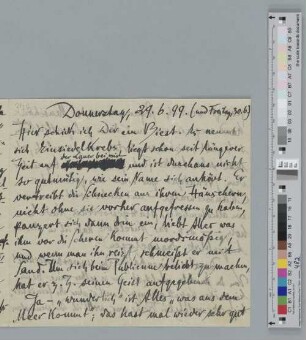 Donnerstag, 29.6.99. (und Freitag, 30.6)
Hier schick ich Dir ein Biest. Es nennt
sich Einsiedel Krebs, liegt schon seit längerer
der Lauer bei mir
Zeit auf und ist durchaus nicht
so gutmütig, wie sein Name sich anhört. Er
vertreibt die Schnecken aus ihren Häuschen,
nicht ohne sie vorher aufgefressen zu haben,
panzert sich dann drin ein, hebt Alles was
ihm vor die Scheren kommt mordsmäßig
und wenn man ihn reizt, schmeisst er mit
Sand. Um sich beim Publicum beliebt zu machen,
hat er z. Z. seinen Geist aufgegeben.
Ja – „wunderlich" ist Alles „was aus dem
Meer kommt", das hast mal wieder sehr gut